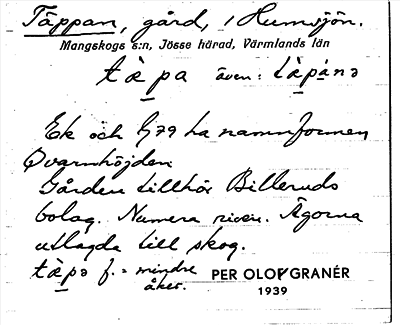 Täppan, gård, i Humsjön.
Mangskogs s:n, Jösse härad, Värmlands län
tæpa även: tæpanə
Ek och G79 ha namnformen
Qvarnhöjden
Gården tillhör Billeruds
bolag. Numera riven. Ägorna
utlagda till skog.
tæpə f. = mindre
åker.
PER OLOF GRANÉR
1939